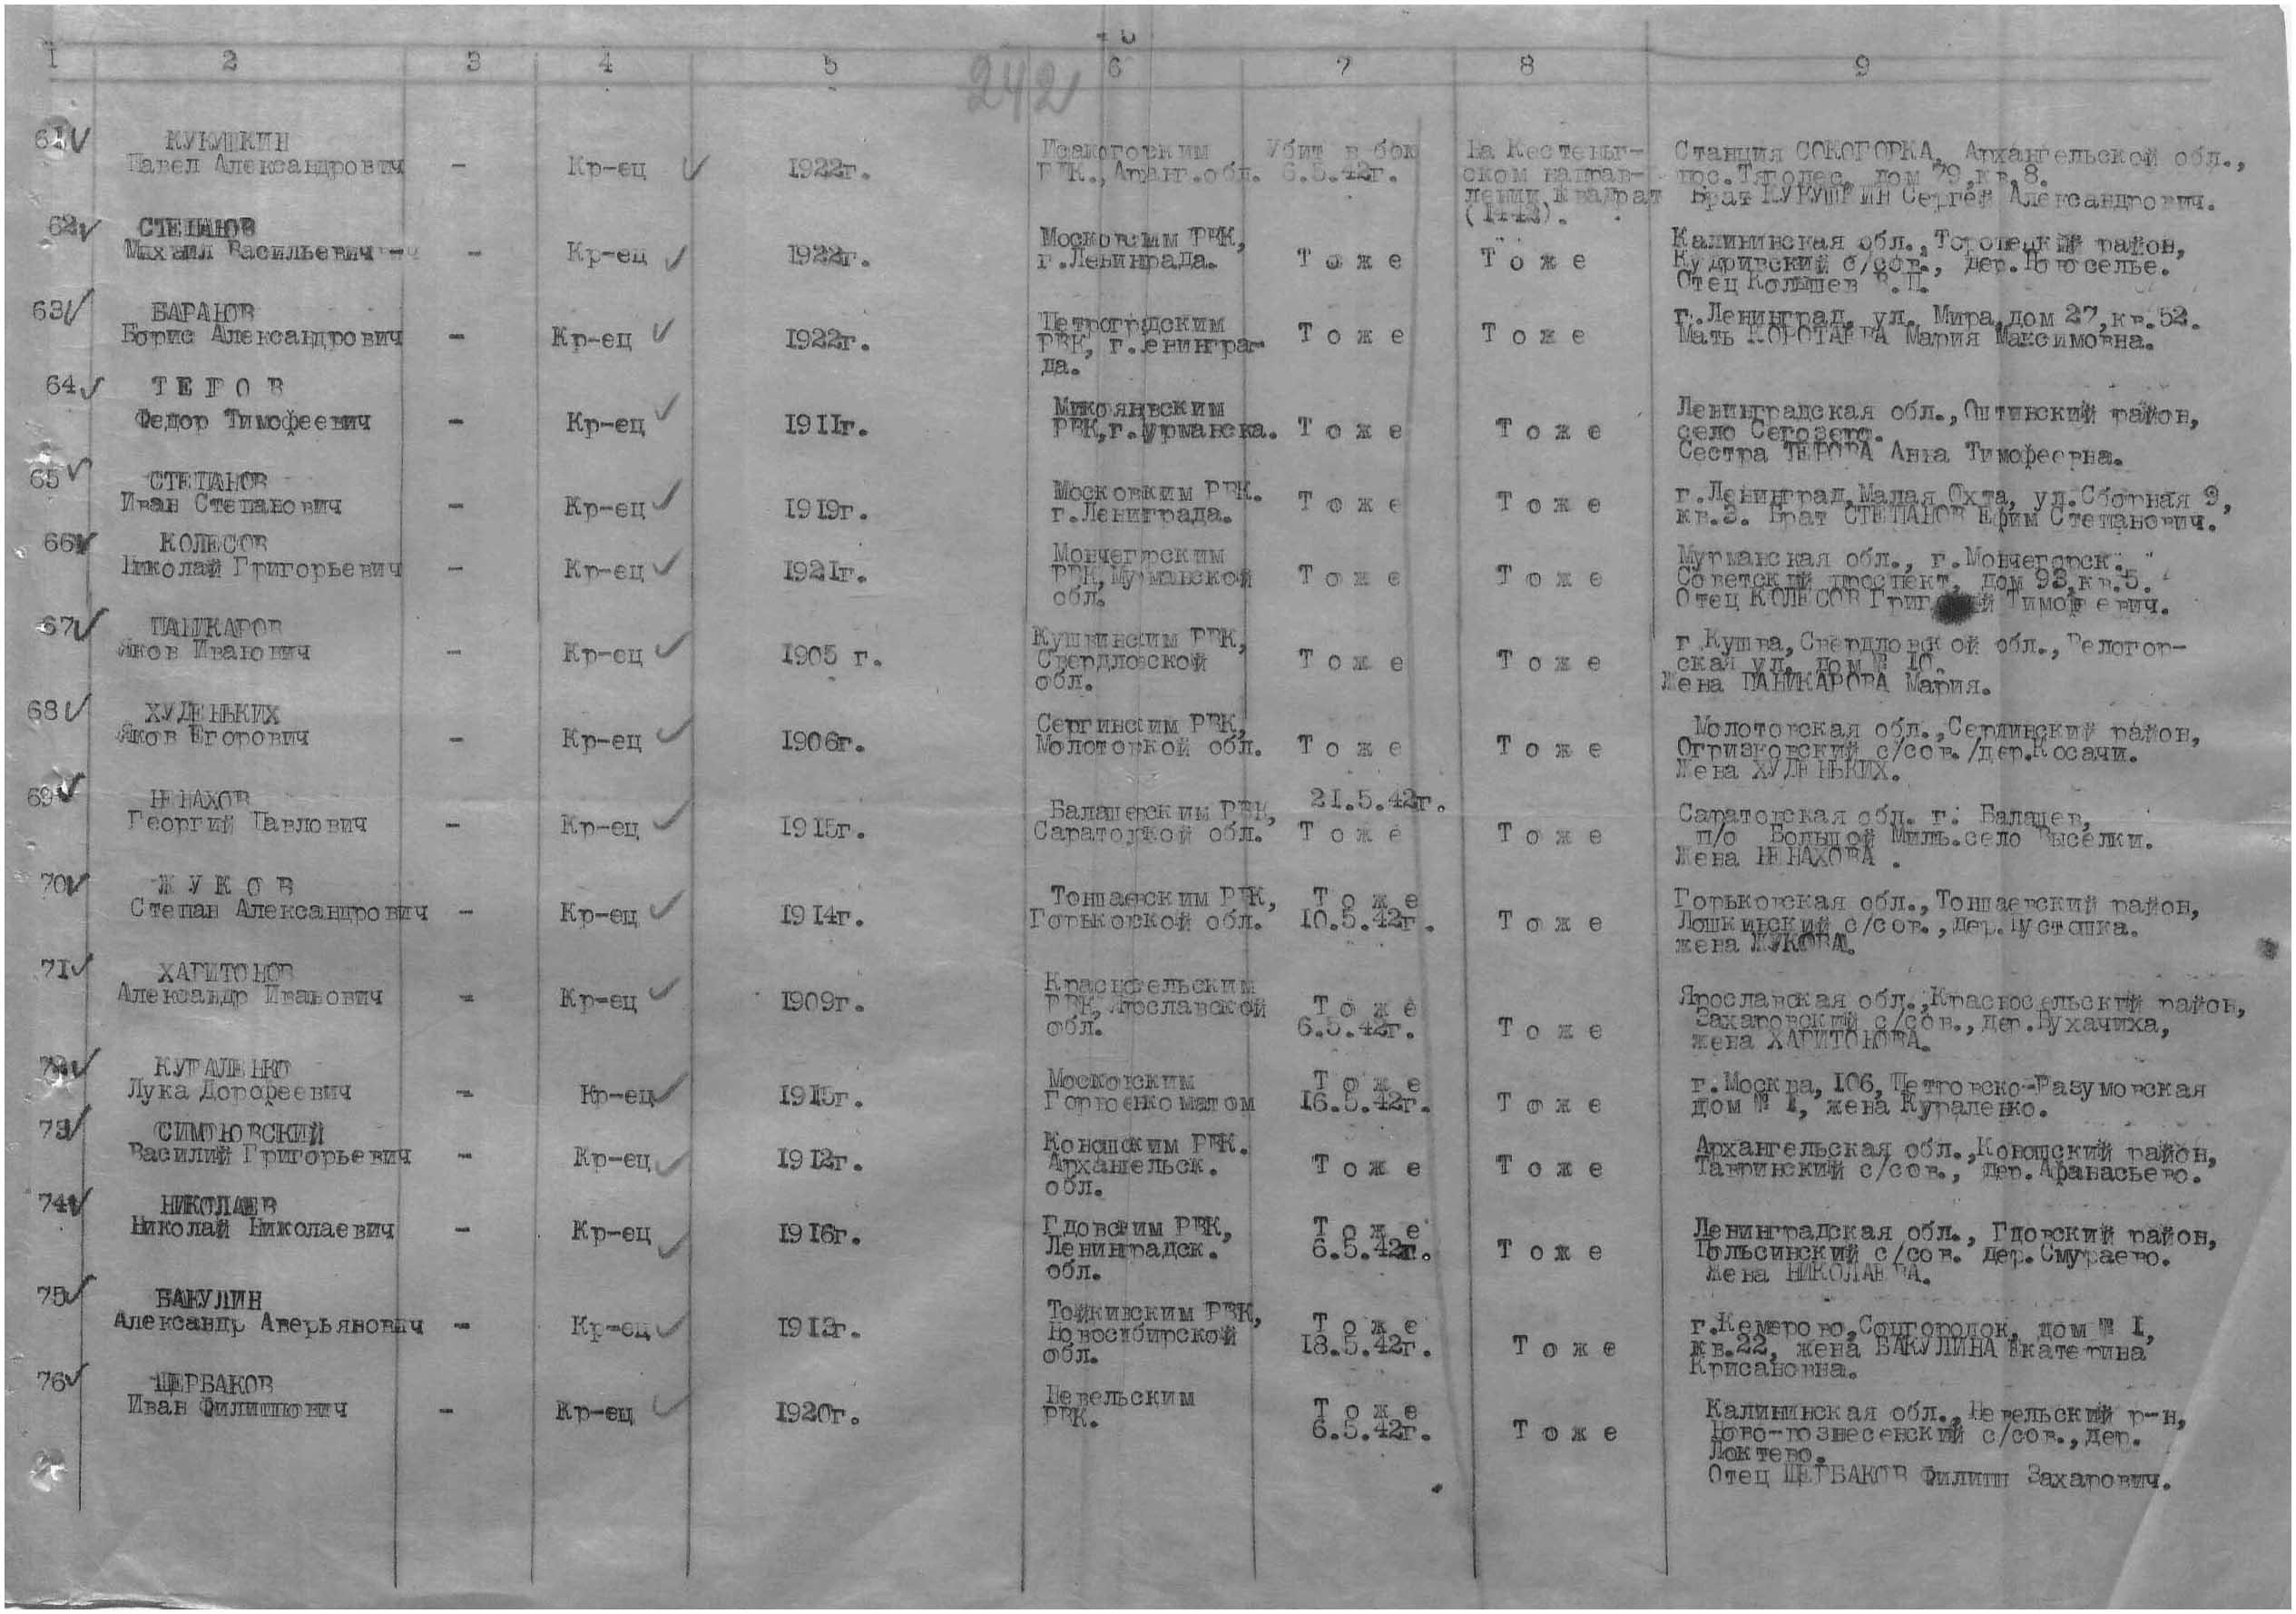 1 2 3 4 5 6 7 8 9
242
61 КУКУШКИН
Павел Александрович - Кр-ец 1922г. Исакогорским РВК., Арханг.обл. Убит в бою 6.5.42г. На Кестеньг-
ском направ-
лении, Квадрат
(1442).
Станция СОКОГОРКА, Архангельской обл.,
пос. Тяголес, дом 79, кв. 8.
Брат КУКУШКИН Сергей Александрович.
62 СТЕПАНОВ
Михаил Васильевич - Кр-ец 1922г. Московским РВК,
г.Ленинграда. Т о ж е Т о ж е
Калининская обл., Торопецкий район,
Кудривский с/сов., дер.
Отец В.П.
63 БАРАНОВ
Борис Александрович - Кр-ец 1922г. Петроградским
РВК, г.Ленингра-
да. Т о ж е Т о ж е
г.Ленинград, ул. Мира, дом 27, кв. 52.
Мать КОРОТАЕВА Мария Максимовна.
64 Т Е Р О В
Федор Тимофеевич - Кр-ец 1911г. Микояновским
РВК, г.Мурманска. Т о ж е Т о ж е
Ленинградская обл., Оштинский район,
село
Сестра ТЕРОВА Анна Тимофеевна.
65 СТЕПАНОВ
Иван Степанович - Кр-ец 1919г. Московким РВК.
г.Лениграда. Т о ж е Т о ж е
г.Ленинград, Малая Охта, ул.Сборная 9,
кв.3. Брат СТЕПАНОВ Ефим Степанович.
66 КОЛЕСОВ
Николай Григорьевич - Кр-ец 1921г. Мончегорским
РВК, Мурманской
обл. Т о ж е Т о ж е
Мурманская обл., г.Мончегорск.
Советский проспект, дом 93, кв.5.
Отец КОЛЕСОВ Григорий Тимофеевич.
67 ПАНИКАРОВ
Яков Иванович - Кр-ец 1905 г. Кушвинским РВК,
Свердловской
обл. Т о ж е Т о ж е
г.Кушва, Свердловской обл., Белогор-
ская ул. дом № 10.
Жена ПАНИКАРОВА Мария.
68 ХУДЕНЬКИХ
Яков Егорович - Кр-ец 1906г. Сергинским РВК,
Молотовкой обл. Т о ж е Т о ж е
Молотовская обл., Сергинский район,
Огризковский с/сов./дер.Косачи.
Жена ХУДЕНЬКИХ.
69 НЕНАХОВ
Георгий Павлович - Кр-ец 1915г. Балашевским РВК,
Саратовкой обл. 21.5.42г.
Т о ж е Т о ж е
Саратовская обл. г. Балашев,
п/о Большой Мелик.село Выселки.
Жена НЕНАХОВА.
70 Ж У К О В
Степан Александрович - Кр-ец 1914г. Тоншаевским РВК,
Горьковской обл. Т о ж е
10.5.42г. Т о ж е
Горьковская обл., Тоншаевский район,
Лошкинский с/сов., дер.Пустошка.
жена ЖУКОВА.
71 ХАРИТОНОВ
Александр Иванович - Кр-ец 1909г. Красносельским
РВК, Ярославской
обл. Т о ж е
6.5.42г. Т о ж е
Ярославская обл., Красносельский район,
Захаровский с/сов., дер.
жена ХАРИТОНОВА.
72 КУРАЛЕНКО
Лука Дорофеевич - Кр-ец 1915г. Московским
Горвоенкоматом Т о ж е
16.5.42г. Т о ж е
г.Москва, 106, Петровско-Разумовская
дом № 1, жена Кураленко.
73 СИМОНОВСКИЙ
Василий Григорьевич - Кр-ец 1912г. Коношским РВК.
Архангельск.
обл. Т о ж е Т о ж е
Архангельская обл., Коношский район,
Тавринский с/сов., дер. Афанасьево.
74 НИКОЛАЕВ
Николай Николаевич - Кр-ец 1916г. Гдовским РВК,
Ленинградск.
обл. Т о ж е
6.5.42г. Т о ж е
Ленинградская обл., Гдовский район,
с/сов. дер.Смураево.
Жена НИКОЛАЕВА.
75 БАКУЛИН
Александр Аверьянович - Кр-ец 1913г. Тойкинским РВК,
Новосибирской
обл. Т о ж е
18.5.42г. Т о ж е
г.Кемерово, Соцгородок, дом № 1,
кв.22, жена БАКУЛИНА Екатерина
Крисановна.
76 ЩЕРБАКОВ
Иван Филиппович - Кр-ец 1920г. Невельским
РВК. Т о ж е
6.5.42г. Т о ж е
Калининская обл., Невельский р-н,
Ново-вознесенский с/сов., дер.
Локтево.
Отец ЩЕРБАКОВ Филипп Захарович.